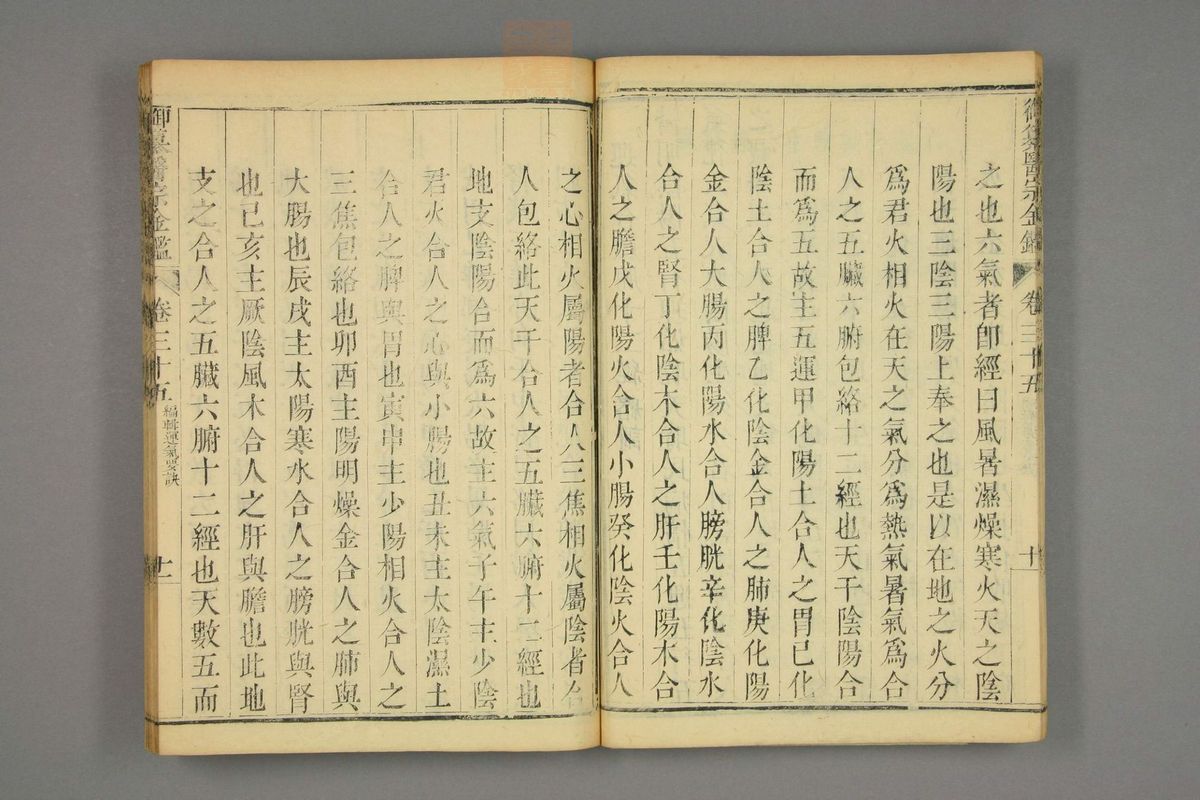 御纂醫宗金鑑
卷三十五
十
之也六氣者卽經曰風暑濕燥寒火天之陰
陽也三陰三陽上奉之也是以在地之火分
爲君火相火在天之氣分爲熱氣暑氣爲合
人之五臟六腑包絡十二經也天干陰陽合
而爲五故主五運甲化陽土合人之胃已化
陰土合人之脾乙化陰金合人之肺庚化陽
金合人大腸丙化陽水合人膀胱辛化陰水
合人之腎丁化陰木合人之肝壬化陽木合
人之膽戊化陽火合人小腸癸化陰火合人
之心相火屬陽者合人三焦相火屬陰者合
人包絡此天干合人之五臟六腑十二經也
地支陰陽合而爲六故主六氣子午主少陰
君火合人之心與小腸也丑未主太陰濕土
合人之脾與胃也寅申主少陽相火合人之
三焦包絡也卯酉主陽明燥金合人之肺與
大腸也辰戌主太陽寒水合人之膀胱與腎
也已亥主厥陰風木合人之肝與膽也此地
支之合人之五臟六腑十二經也天數五而
御纂醫宗金鑑
卷三十五 編輯運氣要訣
十一